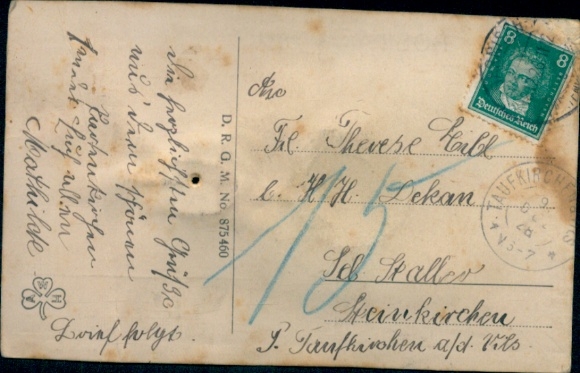 Die herzlichsten Grüße
aus dem schönen
Partenkirchen
Mathilde
Brief folgt.
D. R. G. M. No 875460
An
Frl. Therese Eibl
b. H. H. Dekan
Seb. Staller
Steinkirchen
P. Taufkirchen a/d. Vils.
15
8 8
Deutsches Reich
TAUFKIRCHEN
V 5-7